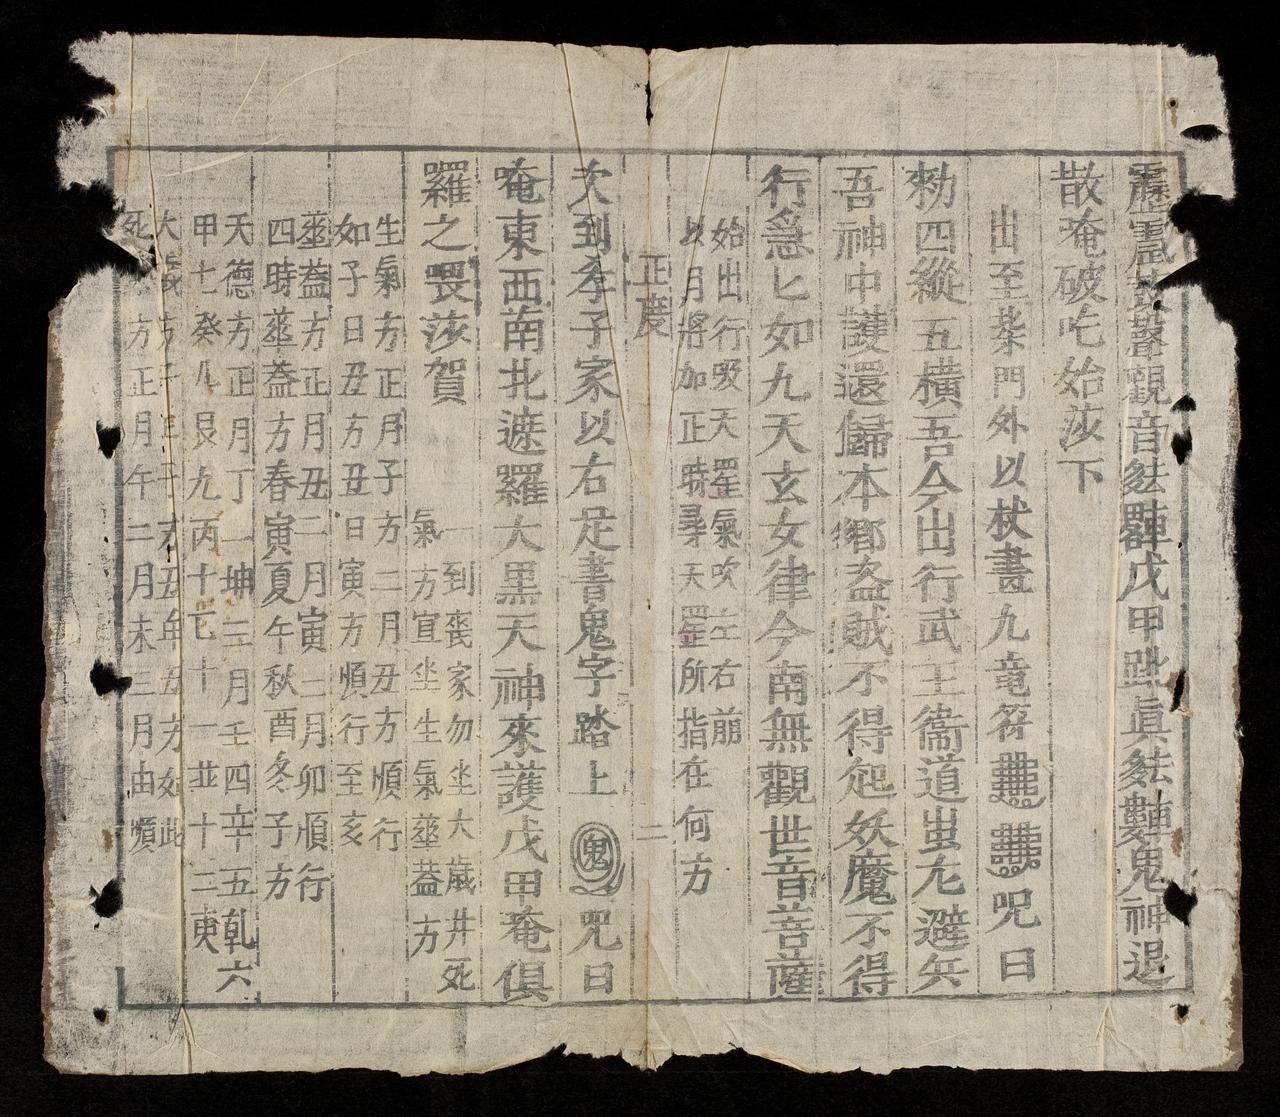 靂靂鼓聲觀音
戊甲
眞
鬼神退
散奄破吃始莎下
出至柴門外以杖畫九竜符
呪曰
勑四縱五橫吾今出行武王衛道蚩尤避兵
吾神中護還歸本鄉盗賊不得起妖魔不得
行急匕如九天玄女律令南無觀世音菩薩
始出行吸天罡氣吹左右崩
以月將加正時尋天罡所指在何方
正度 二
次到孝子家以右足書鬼字踏上
鬼
呪曰
唵東西南北遮羅大黑天神來護戊甲唵俱
羅之畏莎賀
一到喪家勿坐大歲井死
氣方宜坐生氣華盖方
生氣方正月子方二月丑方順行
如子日丑方丑日寅方順行至亥
華盖方正月丑二月寅三月卯順行
四時華盖方春寅夏午秋酉冬子方
天德方正月丁二坤三月壬四辛五乾六
甲七癸八艮九丙十乙十一並十二庚
大歲方子年子方丑年丑方如此
死氣方正月午二月未三月申順